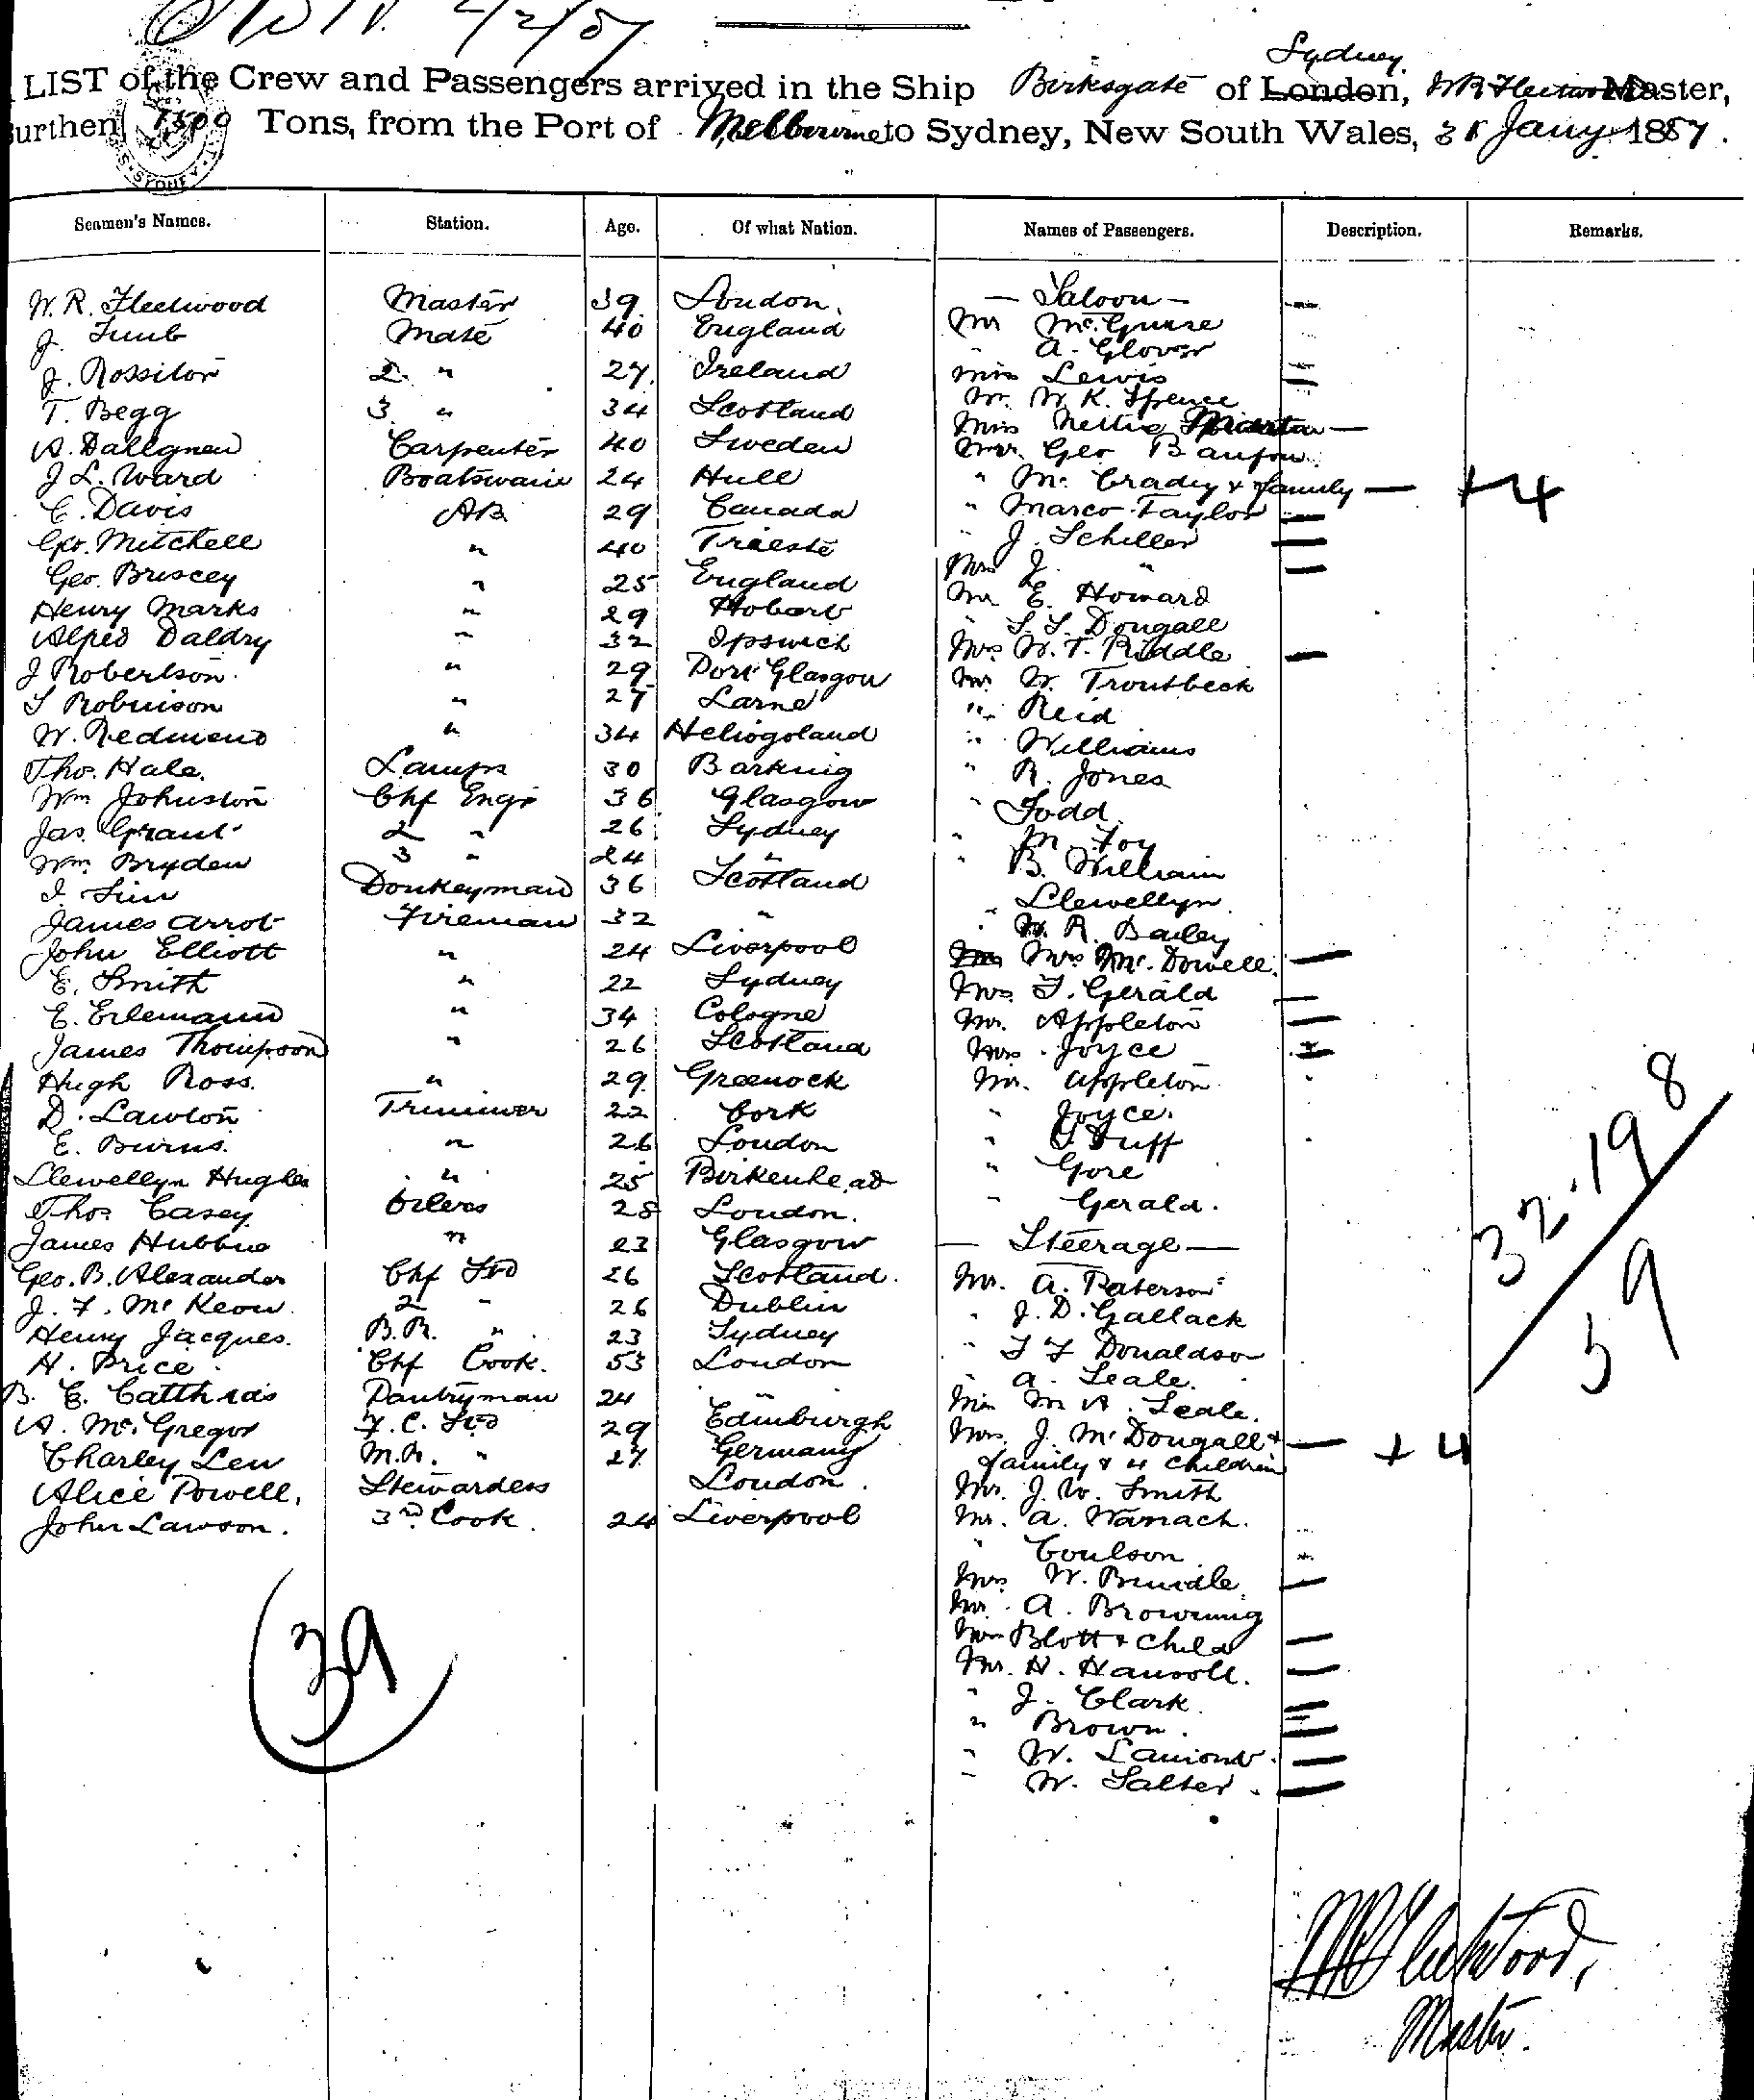 2/2/87
Sydney.
LIST of the Crew and Passengers arrived in the Ship Birksgate of London, W R Fleetwood Master,
Burthen Tons, from the Port of Melbourne to Sydney, New South Wales, 31 Jany 1887.
Seamen's Names. Station. Age. Of what Nation. Names of Passengers. Description. Remarks.
W. R. Fleetwood Master 39 London. — Saloon —
J. Mate 40 England Mr McGuire
" A. Glover
J. Rossiter 2 " 27 Ireland Miss Lewis
T. Begg 3 " 34 Scotland Mr. W. K. Spence
A. Dallgren Carpenter 40 Sweden Miss Nellie
J L. Ward Boatswain 24 Hull Mr. Geo
C. Davis AB 29 Canada " McCrady & family — +4
Geo. Mitchell " 40 Trieste " Marco Taylor
Geo. Briscey " 25 England " J. Schiller
Henry Marks " 29 Hobart Mrs J. "
Alfred Daldry " 32 Ipswich Mr E. Howard
J Robertson " 29 Port Glasgow " Dougall
S Robinson " 27 Larne Mrs W. T. Riddle
W. Redmend " 34 Heliogoland Mr. W. Troutbeck
Tho. Hale. Lamps 30 Barking " Reid
Wm Johnston Chf Engr 36 Glasgow " Williams
Jas. Grant 2 " 26 Sydney " R. Jones
Wm. Bryden 3 " 24 " " Todd
Sim Donkeyman 36 Scotland " M. Foy
James Arrot Fireman 32 " " B. William
John Elliott " 24 Liverpool " Llewellyn
E. Smith " 22 Sydney " W. R. Bailey
E. Erlemann " 34 Cologne Mrs McDowell.
James Thompson " 26 Scotland Mrs. F. Gerald
Hugh Ross. " 29 Greenock Mr. Appleton
D. Lawton Trimmer 22 Cork Mrs. Joyce
E. Burns. " 26 London Mr. Appleton
Llewellyn Hughes " 25 Birkenhead " Joyce.
Thos Casey Oilers 28 London. " Duff
James Hubbue " 23 Glasgow " Gore
Geo. B. Alexander Chf Std 26 Scotland. " Gerald.
J. F. McKeow. 2 " 26 Dublin — Steerage —
Henry Jacques. B.R. " 23 Sydney Mr. A. Paterson
H. Price Chf Cook. 53 London " J. D. Gallack
B. C. Catthras Pantryman 24 " " Donaldson
A. McGregor F.C. Std 29 Edinburgh " A. Seale.
Charley Lew M.R. " 27 Germany Miss M A. Seale.
Alice Powell, Stewardess London. Mrs. J. McDougall &
John Lawson. 3rd Cook 24 Liverpool family & 4 children — +4
Mr. J. W. Smith
Mr. A. Warrach.
" Coulson
Mrs W. Brindle
Mr. A. Browning
Mrs Blott & Child
Mr. H. Hansoll.
" J. Clark
" Brown.
" W. Lamont.
" W. Salter.
32 . 19 8
59
39
W R Fleetwood,
Master.